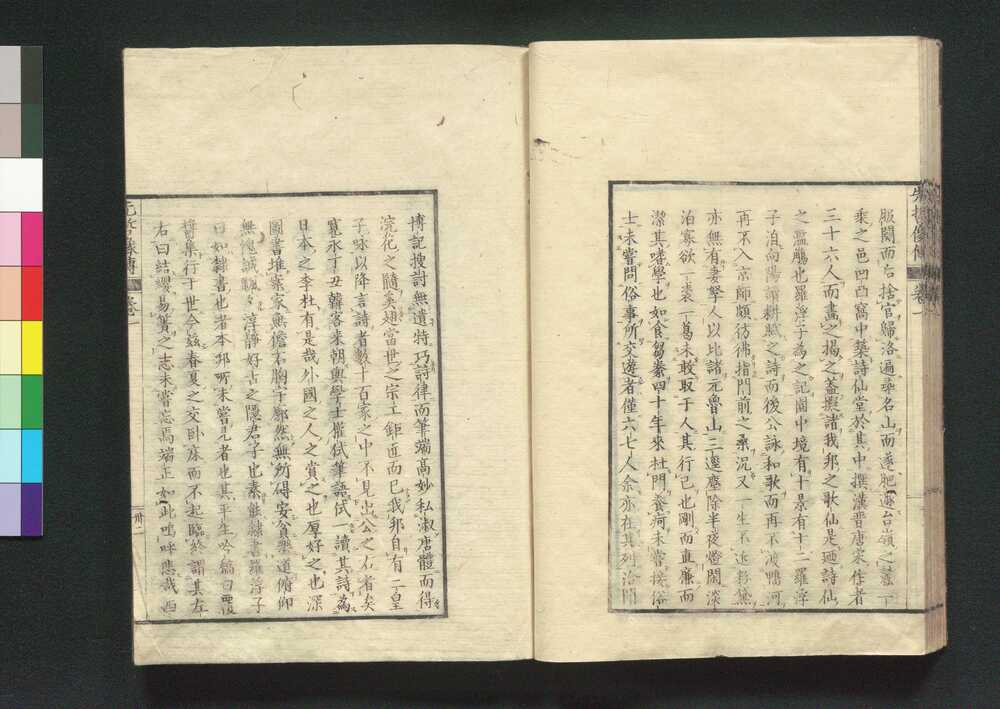 販関而右捨官歸洛遍尋名山而遂肥遯台嶺之麓一
乘之邑凹凸窩中築詩仙堂於其中撰漢晋唐宋作者
三十六人而畫之揭之蓋擬諸我邦之歌仙是廼詩仙
之濫觴也羅浮子為之記圖中境有十景有十二羅浮
子泊向陽謂耕賦之詩而後公詠和歌而再不渡鴨河
再不入京師頗彷彿指門前之桑況又一生不近粉黛
亦無有妻孥人以比諸元魯山三邊塵除半夜燈閣淡
泊寡欲一裘一葛未敢取于人其行己也剛而直廉而
潔其嗜學也如食芻豢四十年來杜門養痾未嘗接俗
士未嘗問俗事所交遊者僅六七人余亦在其列洽聞
博記搜討無遺特巧詩律而筆端高妙私淑唐體而得
浣化之髓奚翅當世之宗工鉅匠而巳我邦自有二皇
子咏以降言詩者數十百家之中不見出公之右者矣
寬永丁丑韓客來朝與學士權侙筆語侙一讀其詩為
日本之李杜有是哉外國之人之賞之也厚好之也深
圖書堆案家無儋石胸宇廓然無所碍安貧樂道俯仰
無愧誠飄々淳靜好古之隱君子也素能隷書羅浮子
曰如隷書也者本邦所未嘗允者也其平生吟稿曰覆
醬集行于世今茲春夏之交卧床而不起臨終謂其左
右曰結纓易簀之志未嘗忘焉端正如此嗚呼悲哉西
卷一
卷一
卅二